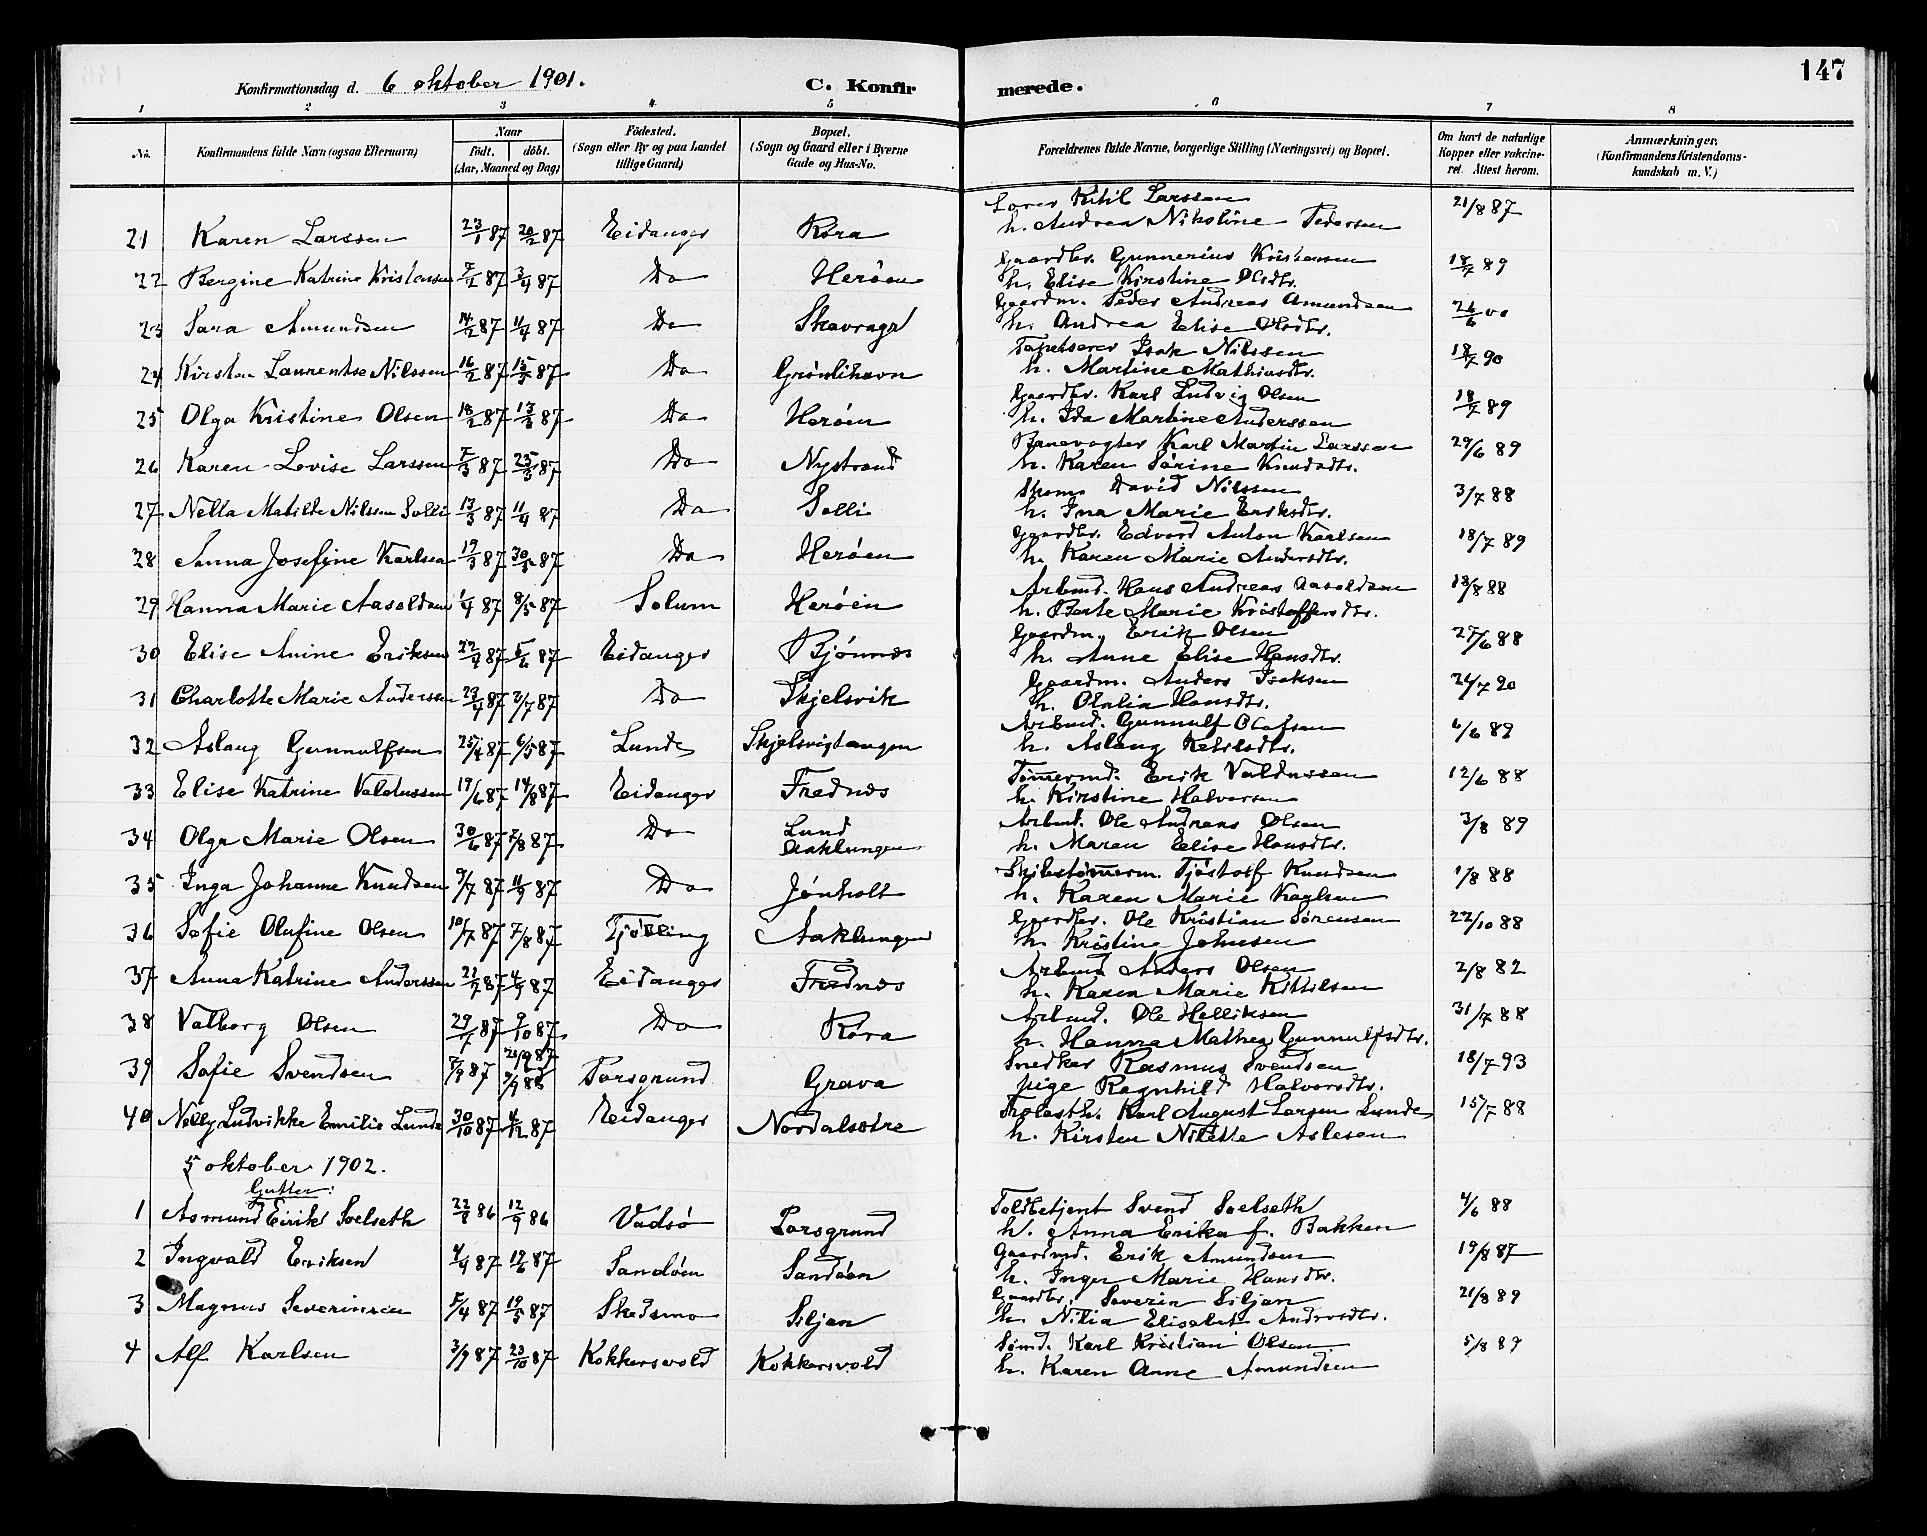 147
Konfirmationsdag d. 6 oktober 1901.
C. Konfirmerede.
1 2 3 4 5 6 7 8
No.
Konfirmandens fulde Navn (ogsaa Efternavn)
Naar
født. døbt.
(Aar, Maaned og Dag)
Fødested.
(Sogn eller By og paa Landet
tillige Gaard)
Bopæl.
(Sogn og Gaard eller i Byerne
Gade og Hus-No.
Forældrenes fulde Navne, borgerlige Stilling (Næringsvei) og Bopæl.
Om havt de naturlige
Kopper eller vakcine-
ret. Attest herom.
Anmærkninger.
(Konfirmandens Kristendoms-
kundskab m. V.)
Lærer Kitil Larssen
21 Karen Larssen 23/1 87 20/2 87 Eidanger Røra h. Andrea Nikoline Pedersen 21/8 87
Gaardbr. Gunnerius Kristensen
22 Bergine Katrine Kristensen 7/2 87 3/4 87 Do Herøen h. Elise Kirstine Olsdtr. 18/7 89
Gaardm. Peder Andreas Amundsen
23 Sara Amundsen 14/2 87 11/4 87 Do Skavrager h. Andrea Elise Olsdtr. 26/6 00
Tapetserer Isak Nilssen
24 Kirsten Laurentse Nilssen 16/2 87 15/5 87 Do Grønlihavn h. Martine Mathiasdtr. 18/7 90
Gaardbr. Karl Ludvig Olsen
25 Olga Kristine Olsen 18/2 87 13/3 87 Do Herøen h. Ida Martine Anderssen 18/7 89
Banevogter Karl Martin Larssen
26 Karen Lovise Larssen 7/3 87 25/5 87 Do Nystrand h. Karen Sørine Knudsdtr. 29/6 89
Skom. David Nilssen
27 Nella Matilde Nilssen Solli 13/3 87 11/4 87 Do Solli h. Ina Marie Eriksdtr. 3/7 88
Gaardbr. Edvard Anton Karlsen
28 Anna Josefine Karlsen 19/3 87 30/5 87 Do Herøen h. Karen Marie Andersdtr. 18/7 89
Arbmd. Hans Andreas Aasoldsen
29 Hanna Marie Aasoldsen 1/4 87 8/5 87 Solum Herøen h. Berte Marie Kristoffersdtr. 13/8 88
Gaardm. Erik Olsen
30 Elise Anine Eriksen 22/4 87 5/6 87 Eidanger Bjønnes h. Anne Elise Hansdtr. 25/6 88
Gaardm. Anders Isaksen
31 Charlotte Marie Anderssen 23/4 87 3/7 87 Do Skjelsvik h. Olalia Hansdtr. 24/7 90
Arbmd. Gunnulf Olafsen
32 Aslaug Gunnulfsen 25/4 87 6/5 87 Lunde Skjelsvigtangen h. Aslaug Ketilsdtr. 6/6 89
Tømmermd. Erik Valdussen
33 Elise Katrine Valdussen 17/6 87 14/8 87 Eidanger Frednes h. Kirstine Halvorsen 12/6 88
Arbmd. Ole Andreas Olsen
34 Olga Marie Olsen 30/6 87 7/8 87 Do Lund Aaklungen h. Maren Elise Hansdtr. 3/8 89
Skibstømmerm. Tjøstolf Knudsen
35 Inga Johanne Knudsen 9/7 87 11/9 87 Do Jønholt h. Karen Marie Karlsen 1/8 88
Gaardbr. Ole Kristian Sørensen
36 Sofie Olufine Olsen 10/7 87 7/8 87 Tjølling Aaklungen h. Kristine Johnsen 22/10 88
Arbmd Anders Olsen
37 Anna Katrine Anderssen 21/7 87 4/9 87 Eidanger Frednes h. Karen Marie Kittilsen 2/8 82
Arbmd. Ole Helliksen
38 Valborg Olsen 29/7 87 9/10 87 Do Røra h. Hanna Mathea Gunnulfsdtr. 31/7 88
Snedker Rasmus Svendsen
39 Sofie Svendsen 7/9 87 21/9 87 Porsgrund Grava pige Ragnhild Halvorsdtr. 18/7 93
Karl August Larsen Lunde
40 Nelly Ludvikke Emilie Lunde 30/10 87 4/12 87 Eidanger Nordalsetre h. Kirsten Nilette Aslesen 15/7 88
5 oktober 1902.
Gutter:
Toldbetjent Svend Soelseth
1 Asmund Eirik Soelseth 22/8 86 12/9 86 Vadsø Porsgrund h. Anna Erika f. Bakken 4/6 88
Gaardmd. Erik Amundsen
2 Ingvald Eriksen 4/4 87 19/6 87 Sandøen Sandøen h. Inger Marie Hansdtr. 19/8 87
Gaardbr. Severin Siljan
3 Magnus Severinsen 5/4 87 19/5 87 Skedsmo Siljan h. Nilia Elisabet Andersdtr. 21/8 89
Sømd. Karl Kristian Olsen
4 Alf Karlsen 3/9 87 23/10 87 Kokkersvold Kokkersvold h. Karen Anne Amundsen 5/8 89